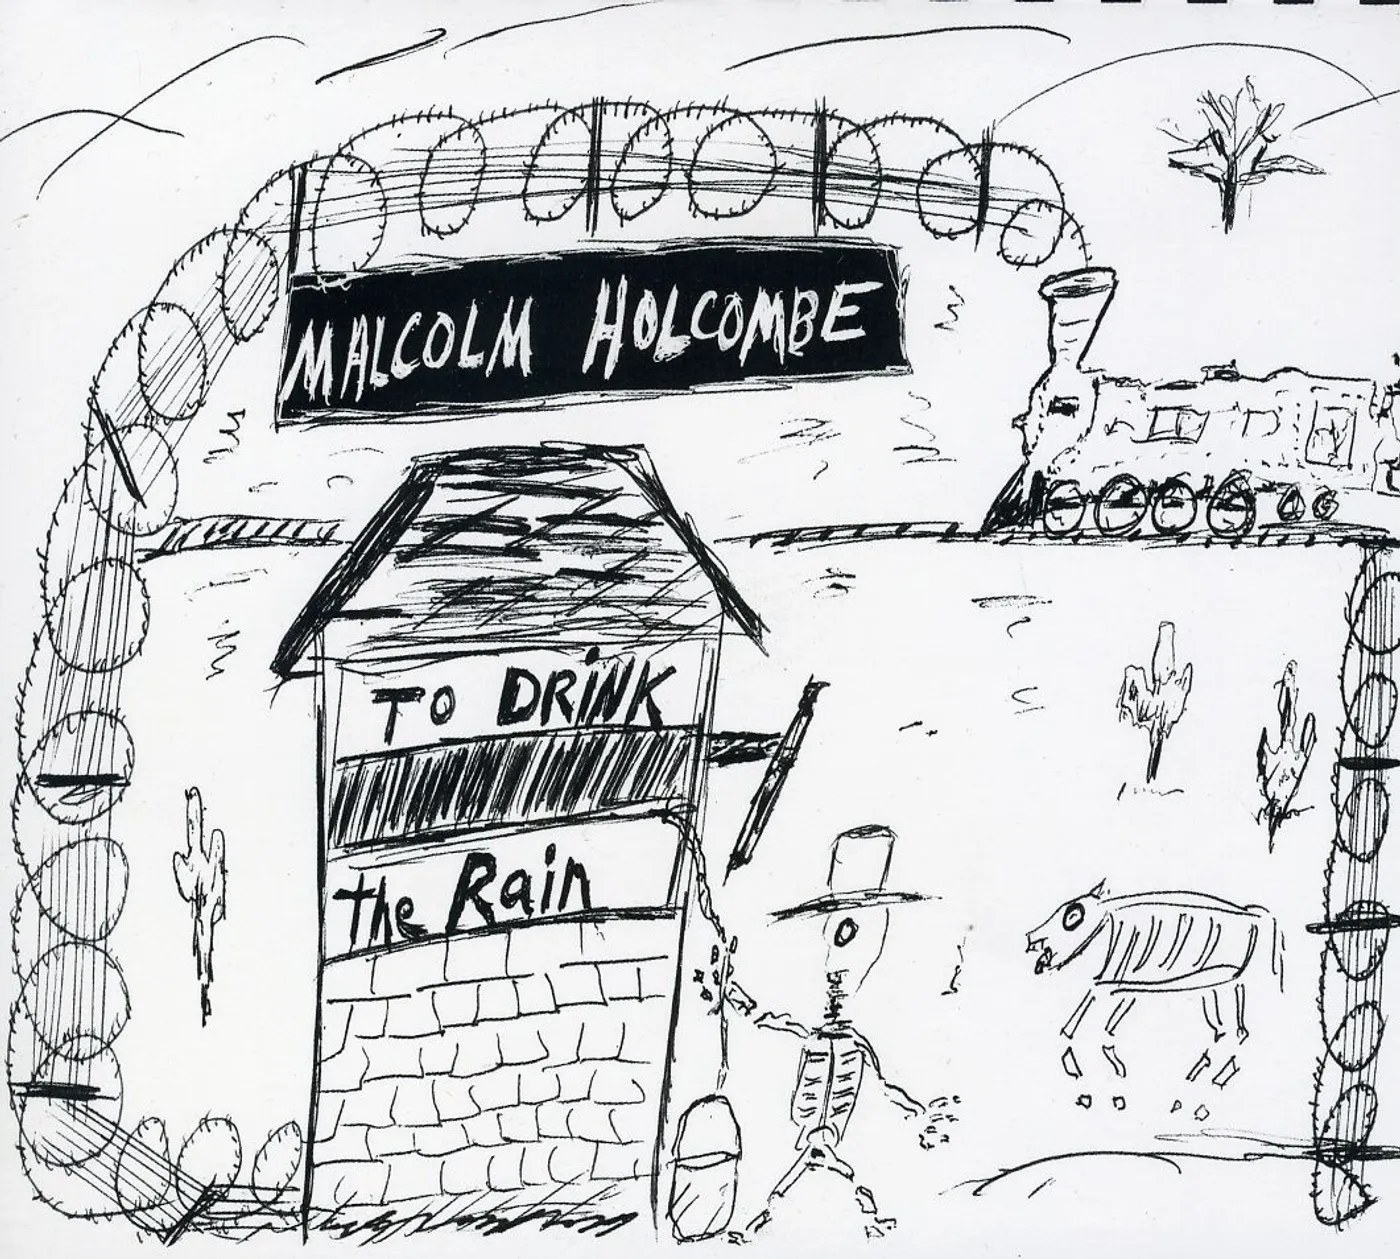 MALCOLM HOLCOMBE
TO DRINK
the Rain